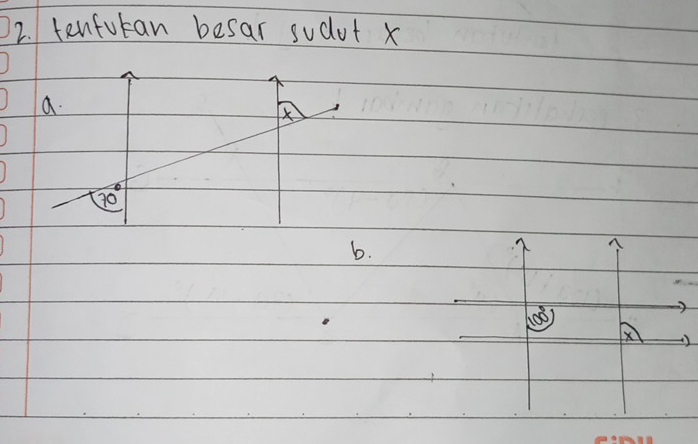 2. tentukan besar sudut x
a.
x
70°
b.
100°
x
SiDU